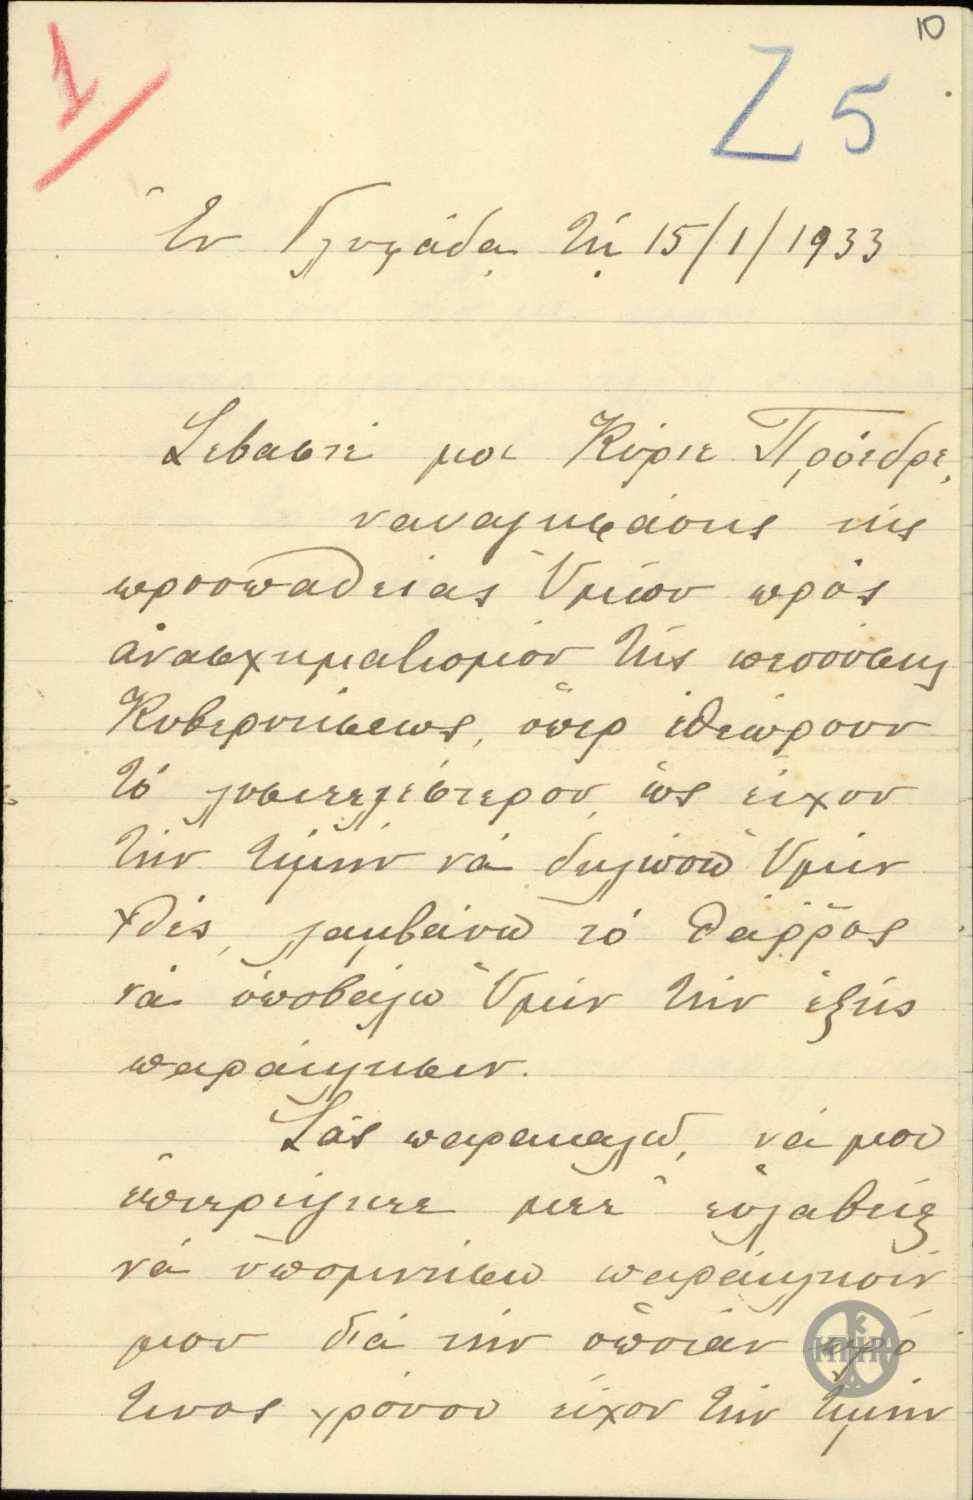 10
1
Z 5
Ἐν Γλυφάδᾳ τῇ 15/1/1933
Σεβαστέ μοι Κύριε Πρόεδρε,
ναυαγησάσης τῆς
προσπαθείας Ὑμῶν πρὸς
ἀνασχηματισμὸν τῆς πεσούσης
Κυβερνήσεως, ὅπερ ἐθεώρουν
τὸ λυσιτελέστερον, ὡς εἶχον
τὴν τιμὴν νὰ δηλώσω Ὑμῖν
χθές, λαμβάνω τὸ θάρρος
νὰ ὑποβάλω Ὑμῖν τὴν ἑξῆς
παράκλησιν.
Σᾶς παρακαλῶ, νὰ μοῦ
ἐπιτρέψητε μετ' εὐλαβείας
νὰ ὑπομνήσω παράκλησίν
μου διὰ τὴν ὁποίαν πρό
τινος χρόνου εἶχον τὴν τιμὴν